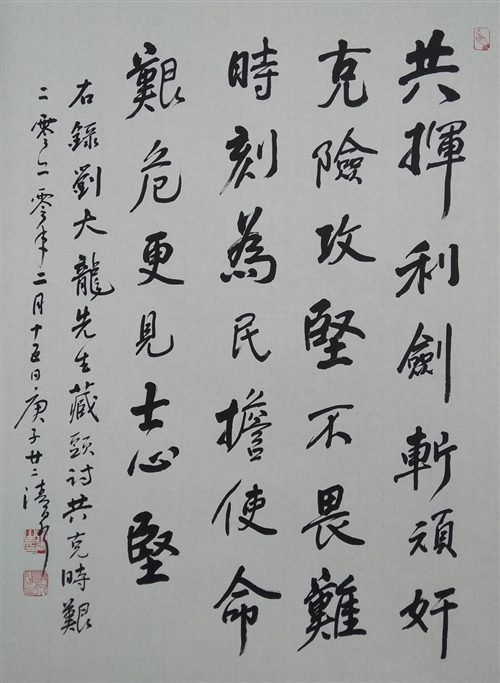 共揮利劍斬頑奸
克險攻堅不畏難
時刻為民擔使命
艱危更見士心堅
右錄劉大龍先生藏頭诗共克時艱
二零二零年二月十五日庚子廿二清